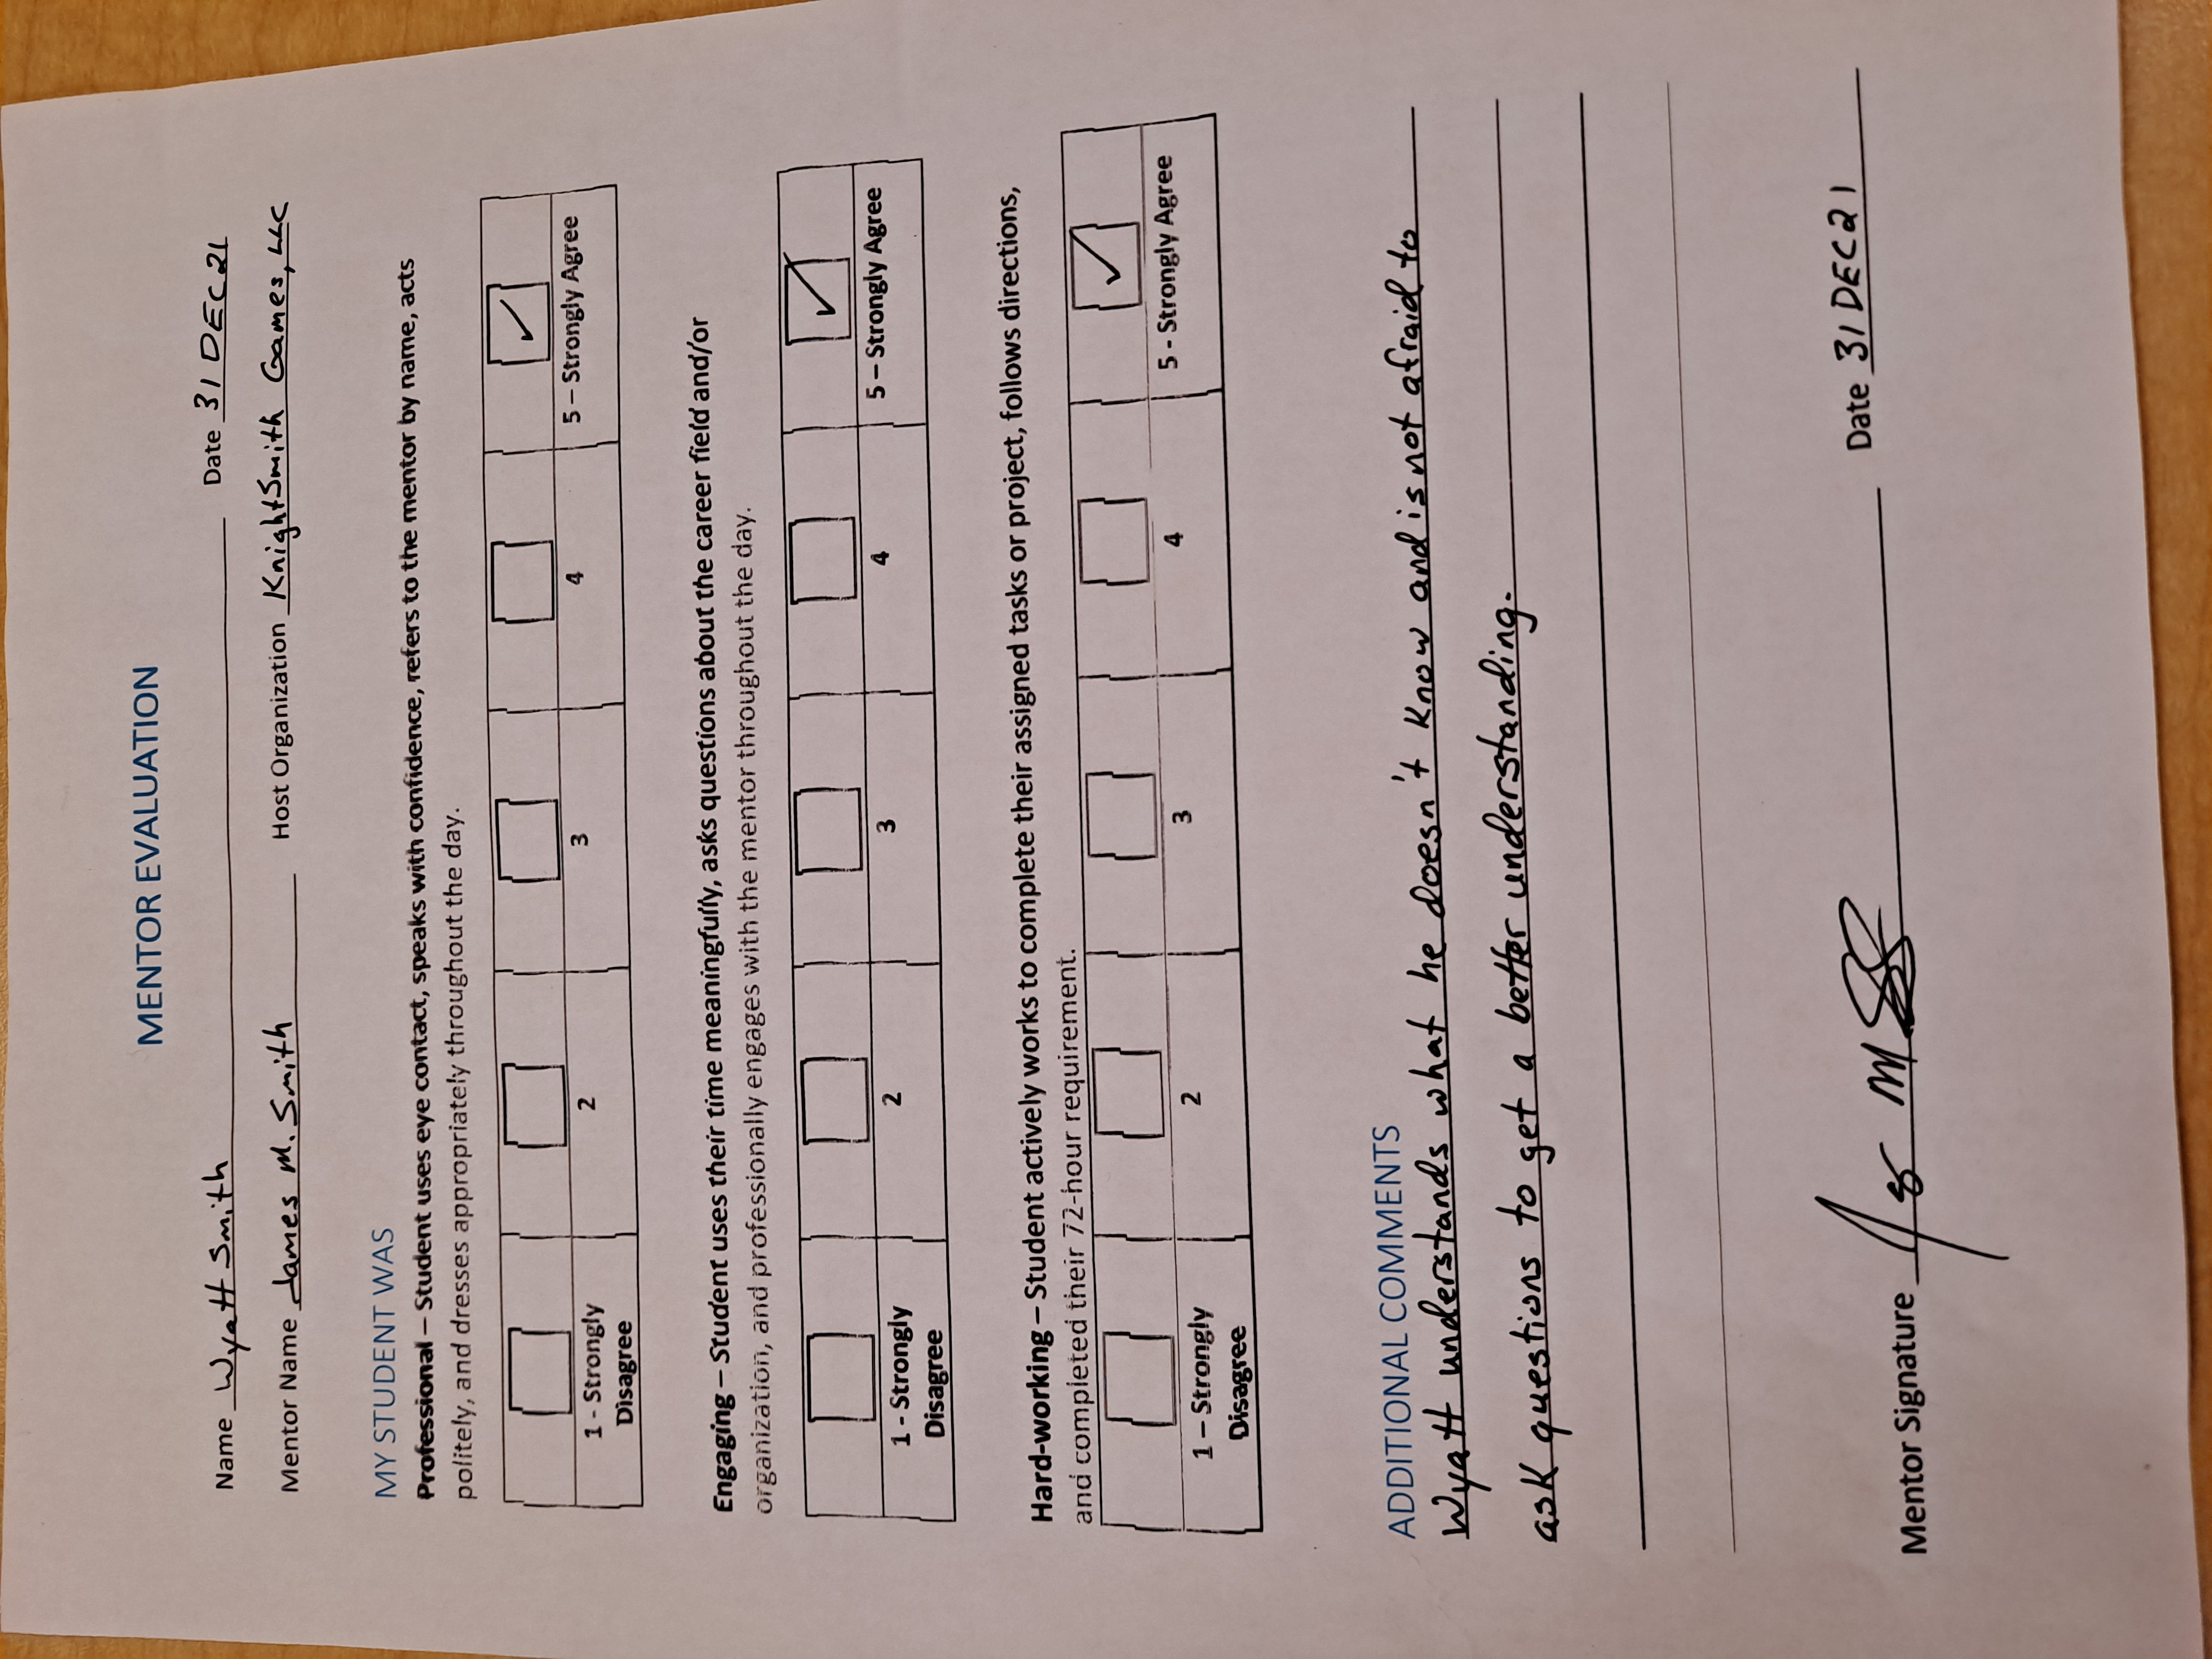 MENTOR EVALUATION
Name Wyatt Smith Date 31 DEC 21
Mentor Name James M. Smith Host Organization KnightSmith Games, LLC
MY STUDENT WAS
Professional – Student uses eye contact, speaks with confidence, refers to the mentor by name, acts
politely, and dresses appropriately throughout the day.
1 - Strongly 2 3 4 5 – Strongly Agree
Disagree
Engaging – Student uses their time meaningfully, asks questions about the career field and/or
organization, and professionally engages with the mentor throughout the day.
1 - Strongly 2 3 4 5 – Strongly Agree
Disagree
Hard-working – Student actively works to complete their assigned tasks or project, follows directions,
and completed their 72-hour requirement.
1 – Strongly 2 3 4 5 - Strongly Agree
Disagree
ADDITIONAL COMMENTS
Wyatt understands what he doesn't know and is not afraid to
ask questions to get a better understanding.
Mentor Signature Date 31 DEC 21